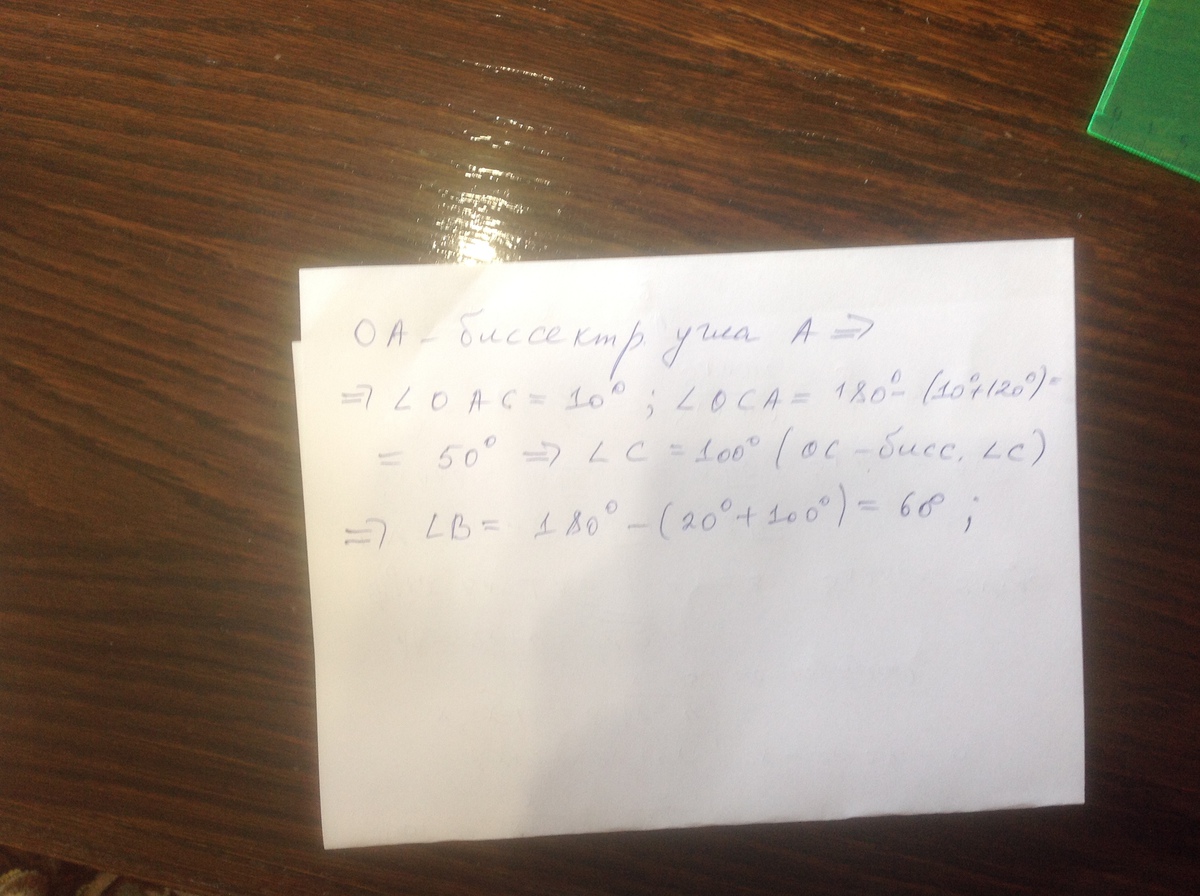 OA - биссектр. угла A ⇒
⇒ ∠OAC = 10°; ∠OCA = 180° - (10°+120°) =
= 50° ⇒ ∠C = 100° (OC - бисс. ∠C)
⇒ ∠B = 180° - (20° + 100°) = 60°;